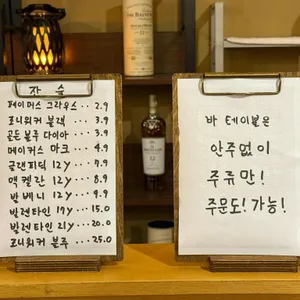 자 술
페이머스 그라우스 .. 2.9
죠니워커 블랙 ... 3.9
골든 블루 다이아 ... 3.9
메이커스 마크 ... 4.9
글랜피딕 12y ... 7.9
맥켈란 12y ... 8.9
발베니 12y ... 9.9
발렌타인 17y ... 15.0
발렌타인 21y ... 20.0
죠니워커 블루 ... 25.0
바 테이블은
안주없이
주류만!
주문도! 가능!
THE BALVENIE
12